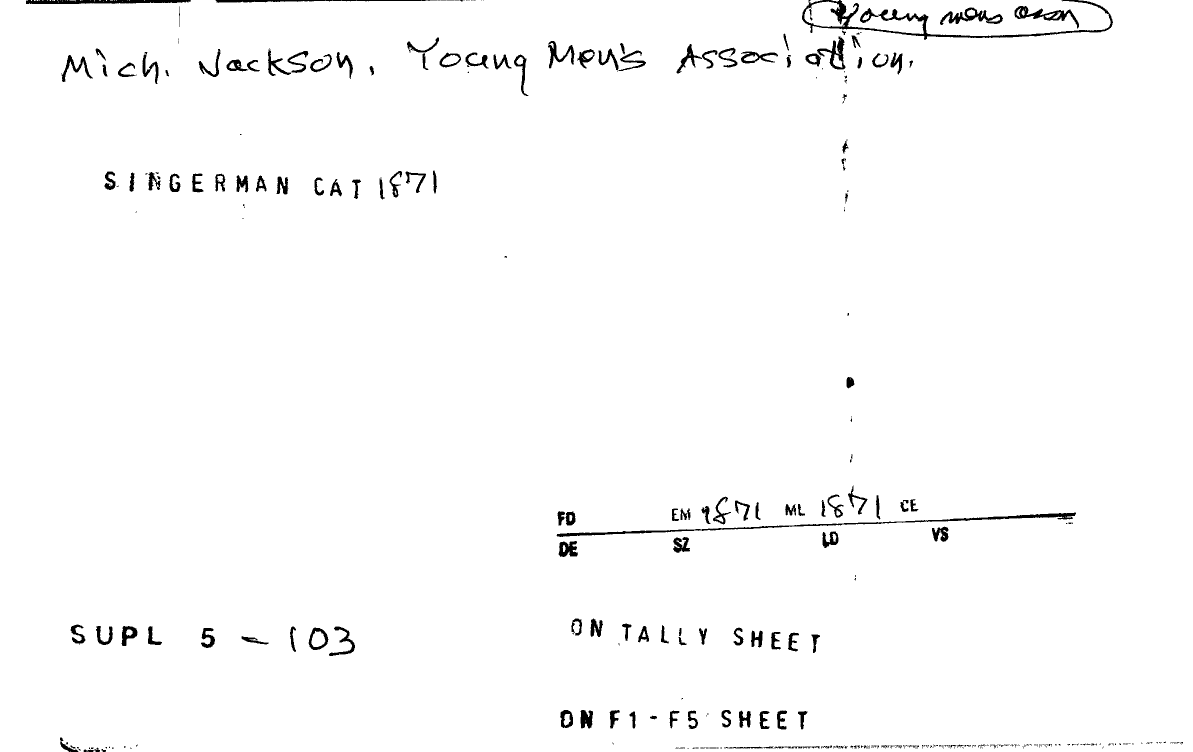 Young mens assn
Mich. Jackson. Young Men's Association.
SINGERMAN CAT 1871
FD EM 1871 ML 1871 CE
DE SZ LD VS
SUPL 5 - 103 ON TALLY SHEET
ON F1-F5 SHEET